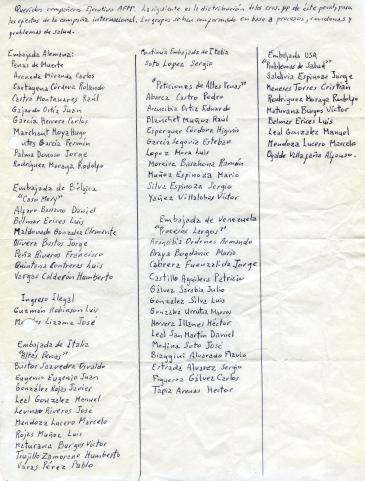 Queridos compañeros Ejecutivo AFPP. La siguiente es la distribución de los cros. pp de este penal, para
los efectos de la campaña internacional. Los grupos se han conformado en base a procesos, condenas y
problemas de salud.
Embajada Alemana:
Penas de Muerte
Araneda Miranda Carlos
Cartagena Córdova Rolando
Castro Montanares Raúl
Gajardo Ortiz Juan
García Herrera Carlos
Marchant Moya Hugo
García Fermín
Palma Donoso Jorge
Rodríguez Moraga Rodolfo
Embajada de Bélgica
"Caso Mery"
Alfaro Barrano Daniel
Belmar Erices Luis
Maldonado Gonzalez Clemente
Rivera Bustos Jorge
Peña Riveros Francisco
Quintana Contreras Luis
Vargas Calderón Humberto
Ingreso Ilegal
Guzmán Robinson Luis
Lizama José
Embajada de Italia
"Altas Penas"
Bustos Saavedra Osvaldo
Eugenio Eugenio Juan
González Rojas Javier
Leal Gonzalez Manuel
Levinao Riveros José
Mendoza Lucero Marcelo
Rojas Muñoz Luis
Maturana Burgos Víctor
Trujillo Zamorano Humberto
Varas Pérez Pablo
Continúa Embajada de Italia
Soto López Sergio
"Peticiones de Altas Penas"
Abarca Castro Pedro
Arancibia Ortiz Eduardo
Blanchet Muñoz Raúl
Esperguez Córdova Higinio
García Segovia Esteban
Lopez Mora Luis
Moreira Barahona Ramón
Muñoz Espinoza Mario
Silva Espinoza Sergio
Yañez Villalobos Víctor
Embajada de Venezuela
"Procesos Largos"
Arancibia Ordenes Armando
Araya Bogdanic Mario
Cabrera Fuenzalida Jorge
Castillo Aguilera Patricio
Gálvez Sarabia Julio
Gonzalez Silva Luis
Gonzalez Urrutia Marcos
Herrera Illanes Héctor
Leal San Martín Daniel
Medina Soto José
Biaggini Alvarado Flavio
Estrada Alvarez Sergio
Figueroa Gálvez Carlos
Tapia Armas Hector
Embajada USA
"Problemas de Salud"
Saldivia Espinoza Jorge
Meneses Torres Cristián
Rodríguez Moraga Rodolfo
Maturana Burgos Víctor
Belmar Erices Luis
Leal González Manuel
Mendoza Lucero Marcelo
Ogalde Villafaña Alfonso.